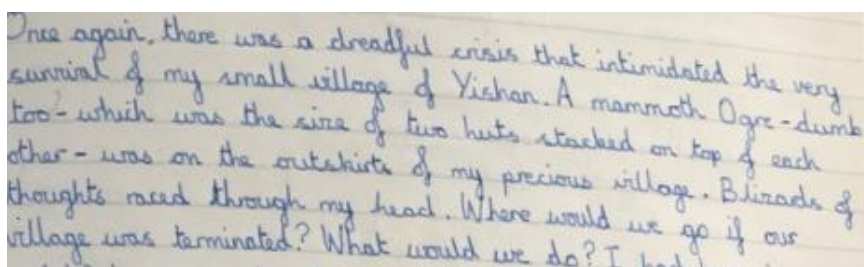 Once again, there was a dreadful crisis that intimidated the very
survival of my small village of Yishan. A mammoth Ogre-dumb
too - which was the size of two huts stacked on top of each
other - was on the outskirts of my precious village. Blizards of
thoughts raced through my head. Where would we go if our
village was terminated? What would we do? I had